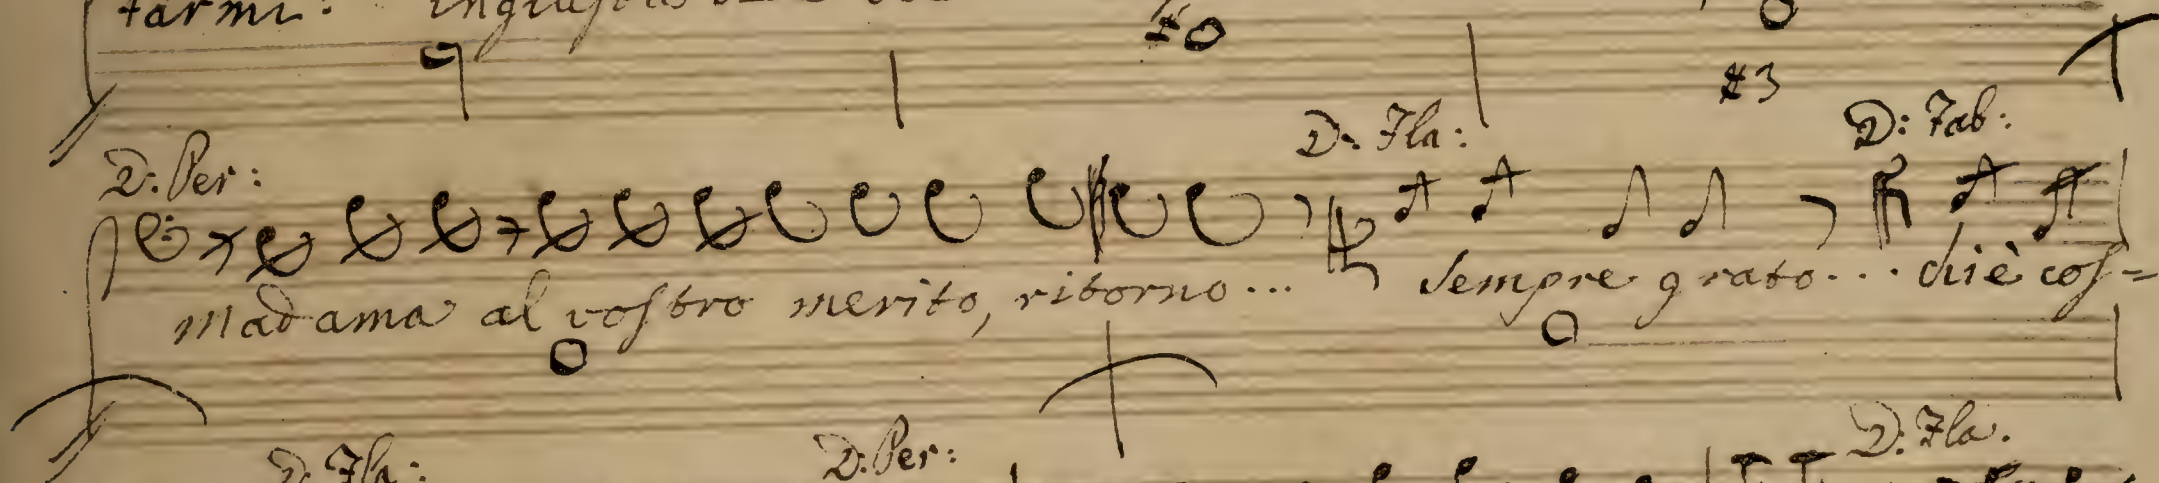 farmi:
#3
D: Fla: D: Fab:
D: Per:
Madama al vostro merito, ritorno... Sempre grato... chi è cos=
D: Fla: D: Per: D: Fla.